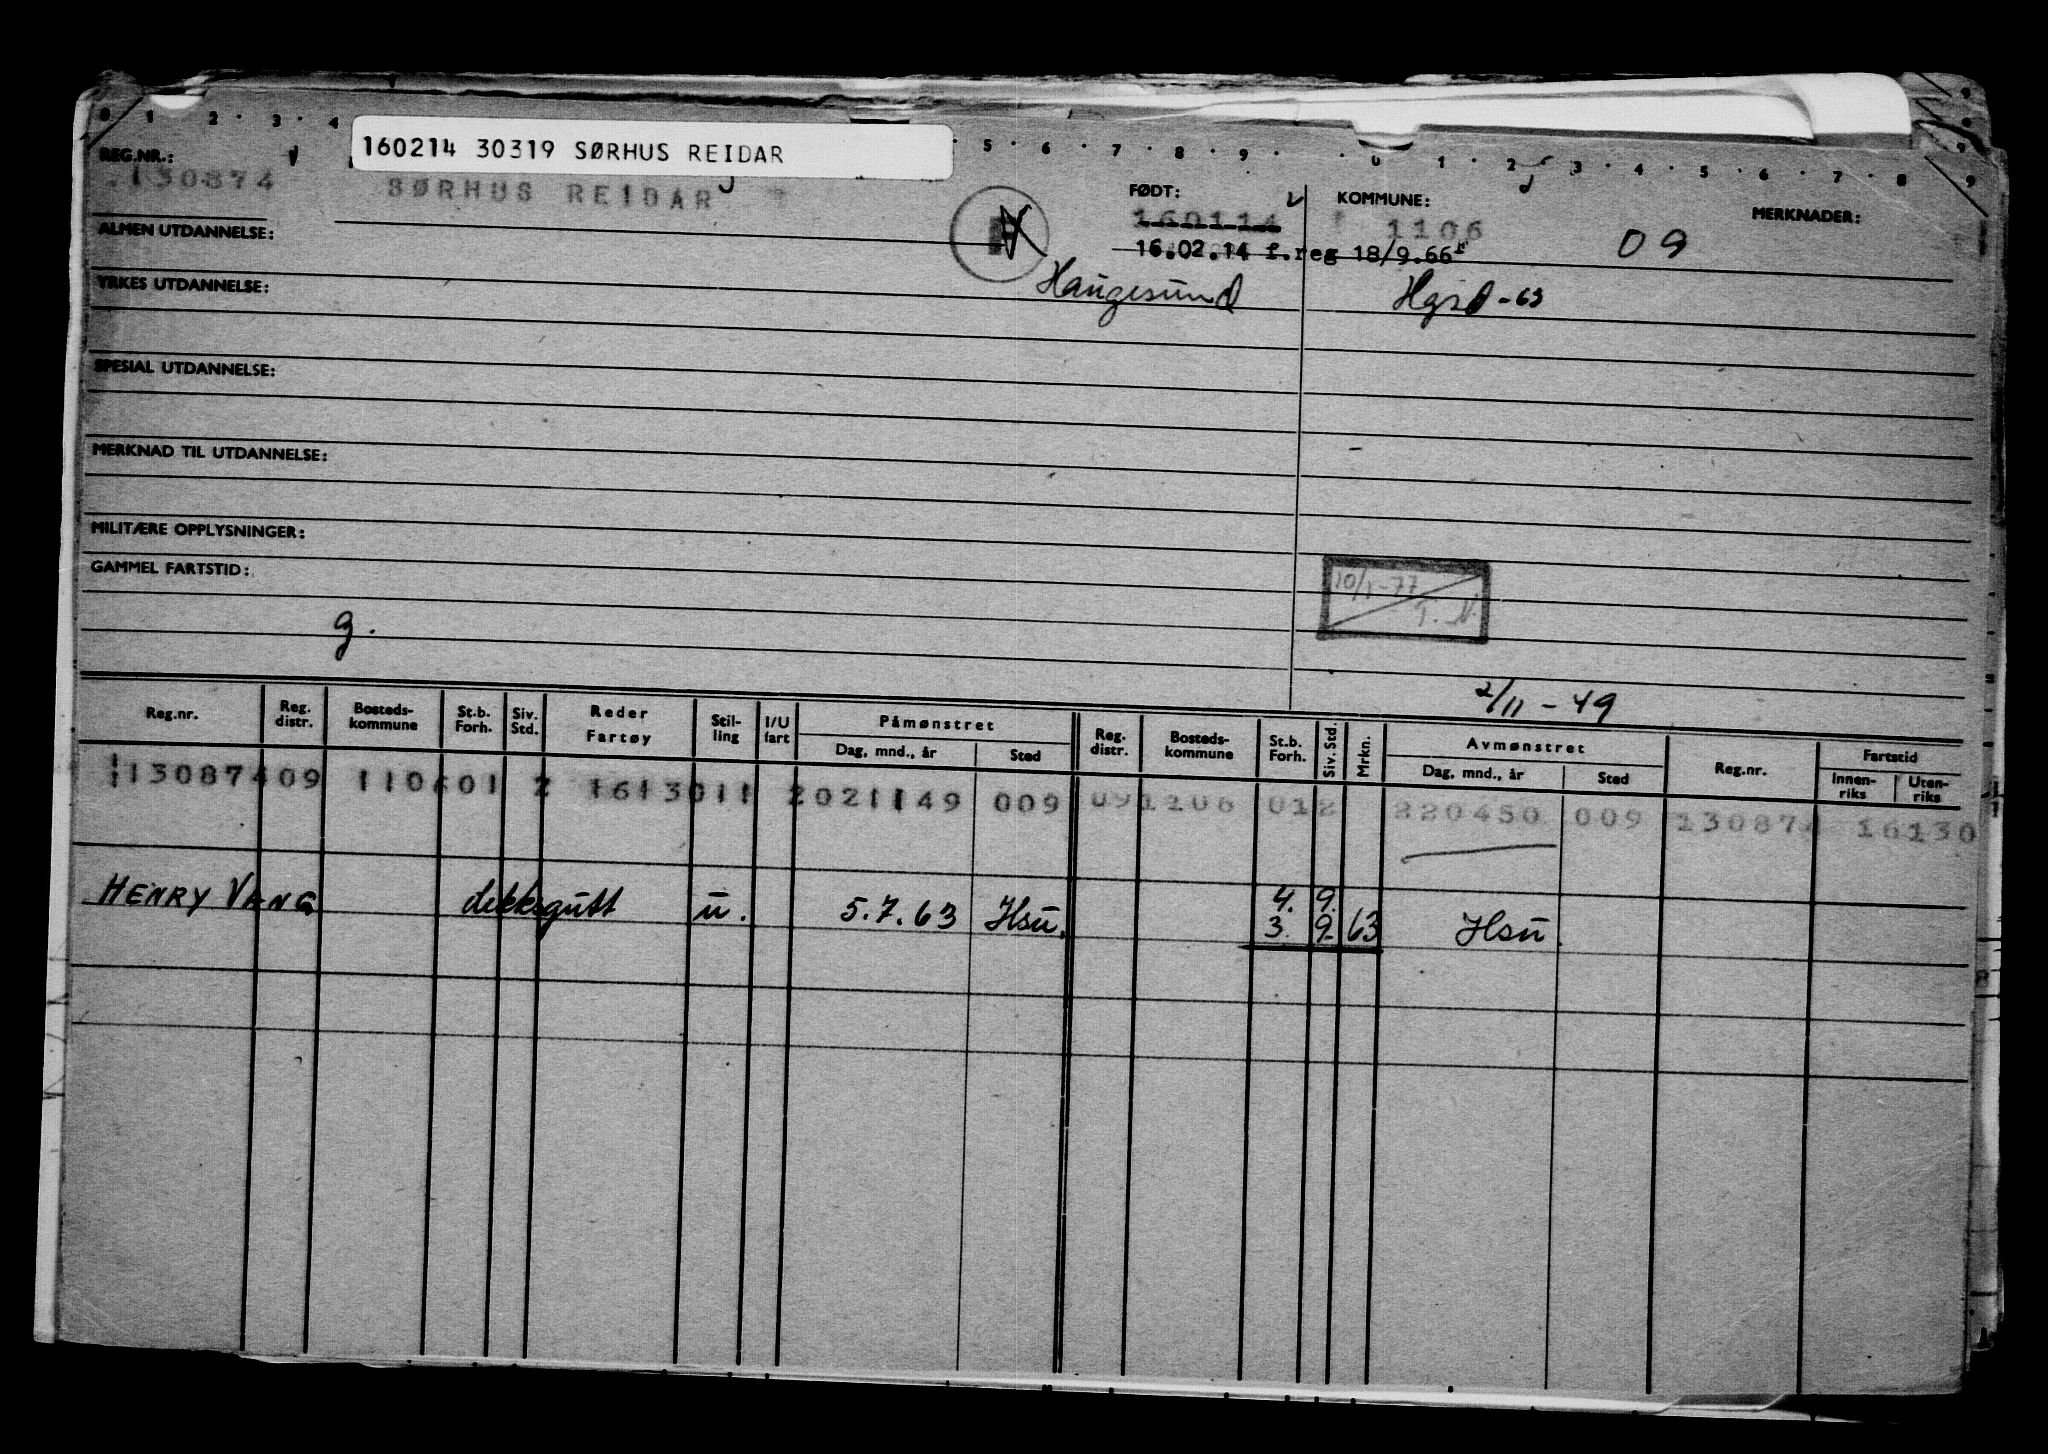 160214 30319 SØRHUS REIDAR
REG.NR.:
130874
SØRHUS REIDAR
FØDT:
160114
KOMMUNE:
1106
MERKNADER:
09
16.02.14 f.reg 18/9.66
ALMEN UTDANNELSE:
Haugesund
Hgsd-63
YRKES UTDANNELSE:
SPESIAL UTDANNELSE:
MERKNAD TIL UTDANNELSE:
MILITÆRE OPPLYSNINGER:
GAMMEL FARTSTID:
10/1-77
T. N.
g.
2/11-49
Reg.nr. Reg. distr. Bosteds-kommune St.b. Forh. Siv. Std. Reder Fartøy Stil-ling I/U fart Påmønstret Dag, mnd., år Sted Reg. distr. Bosteds-kommune St.b. Forh. Siv. Std. Mrkn. Avmønstret Dag, mnd., år Sted Reg.nr. Fartstid Innen-riks Uten-riks
13087409 110601 2 1613011 2021149 009 091106 012 220450 009 130874 16130
HENRY VANG dekksgutt u. 5.7.63 Hsu. 4. 9.
3. 9. 63 Hsu.